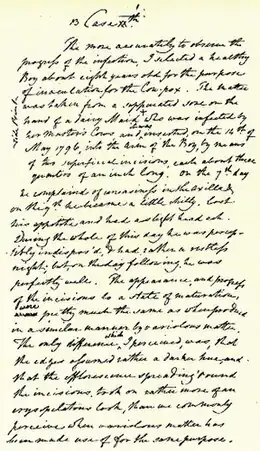 13 Case 
The more accurately to observe the
progress of the infection, I selected a healthy
Boy about eight years old for the purpose
of inoculation for the Cow-pox. The matter
was taken from a suppurated sore on the
hand of a dairy Maid + who was infected by
her Master's Cows and inserted, on the 14th of
May 1796, into the arm of the Boy, by means
of two superficial incisions, each about three
quarters of an inch long. On the 7th day
he complained of uneasiness in the axilla &
on the 9th he became a little chilly, lost
his appetite, and had a slight head-ach.
During the whole of this day he was percep-
tibly indispos'd, & had rather a restless
night; but, on the day following, he was
perfectly well. The appearance, and progress
of the incisions to a state of maturation,
were pretty much the same as when produced
in a similar manner by variolous matter.
The only difference, which I perceived, was, that
the edges assumed rather a darker hue, and
that the efflorescence spreading round
the incisions, took on rather more of an
erysipelatous look, than we commonly
perceive when variolous matter has
been made use of for the same purpose.